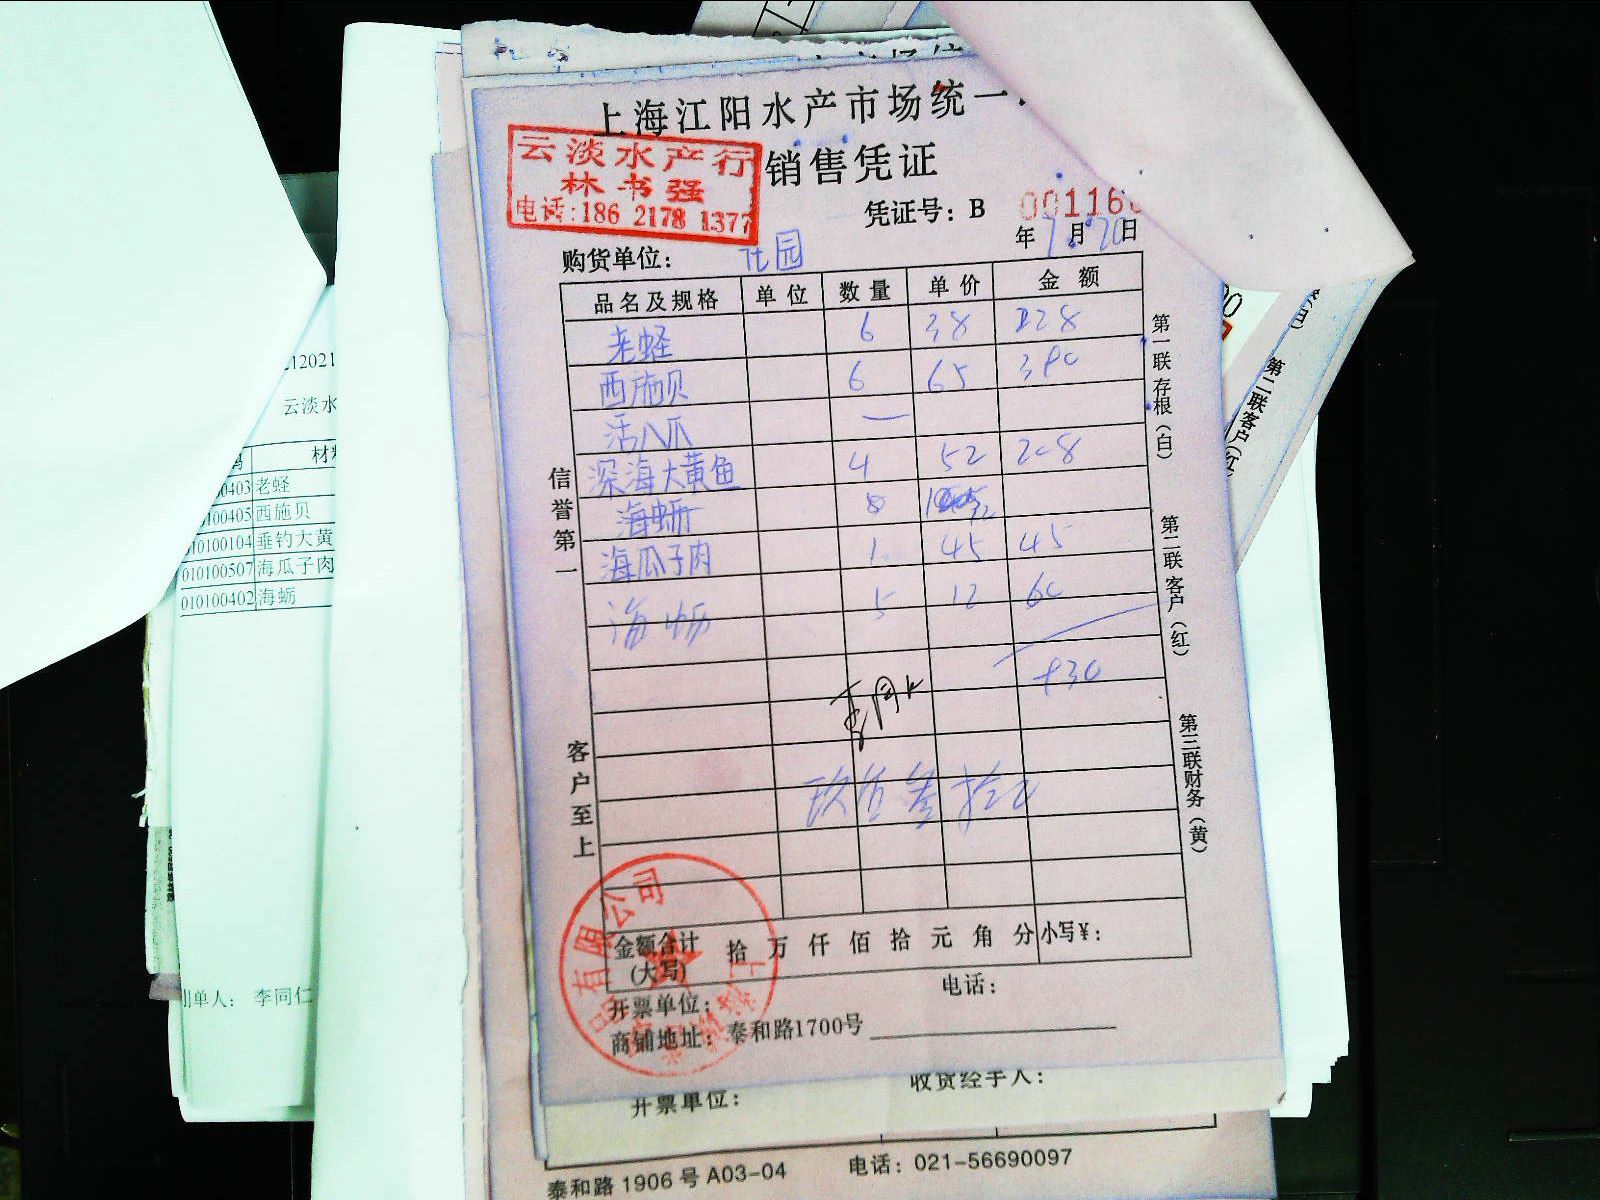 上海江阳水产市场统一
销售凭证
云淡水产行
林书强
电话:186 2178 1377
凭证号：B 00116
年 7 月 20 日
购货单位： 花园
品名及规格 单位 数量 单价 金额
老蛏 6 38 228
西施贝 6 65 390
活八爪 —
深海大黄鱼 4 52 208
海蛎 8
海瓜子肉 1 45 45
海蛎 5 12 60
930
玖佰叁拾元
金额合计(大写) 拾 万 仟 佰 拾 元 角 分 小写¥：
开票单位： 电话：
商铺地址：泰和路1700号
信誉第一
客户至上
第一联存根（白）
第二联客户（红）
第三联财务（黄）
第二联客户（红
收货经手人：
开票单位：
泰和路 1906 号 A03-04 电话：021-56690097
2021
云淡水
材
0403 老蛏
100405 西施贝
010100104 垂钓大黄
010100507 海瓜子肉
010100402 海蛎
单人： 李同仁